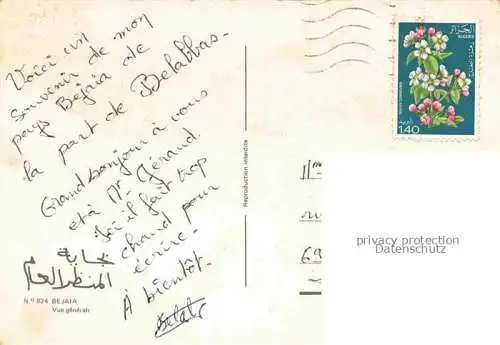 Voici un
souvenir de mon
pays Bejaia de
la part de Belabbas.
Grand bonjour à vous
et à Mr Géraud.
Ici il fait trop
chaud pour
écrire.
À bientôt.
بجاية
المنظر العام
N.º 824 BEJAIA
Vue générale
Reproduction interdite
الجزائر
ALGERIE
1.40
privacy protection
Datenschutz